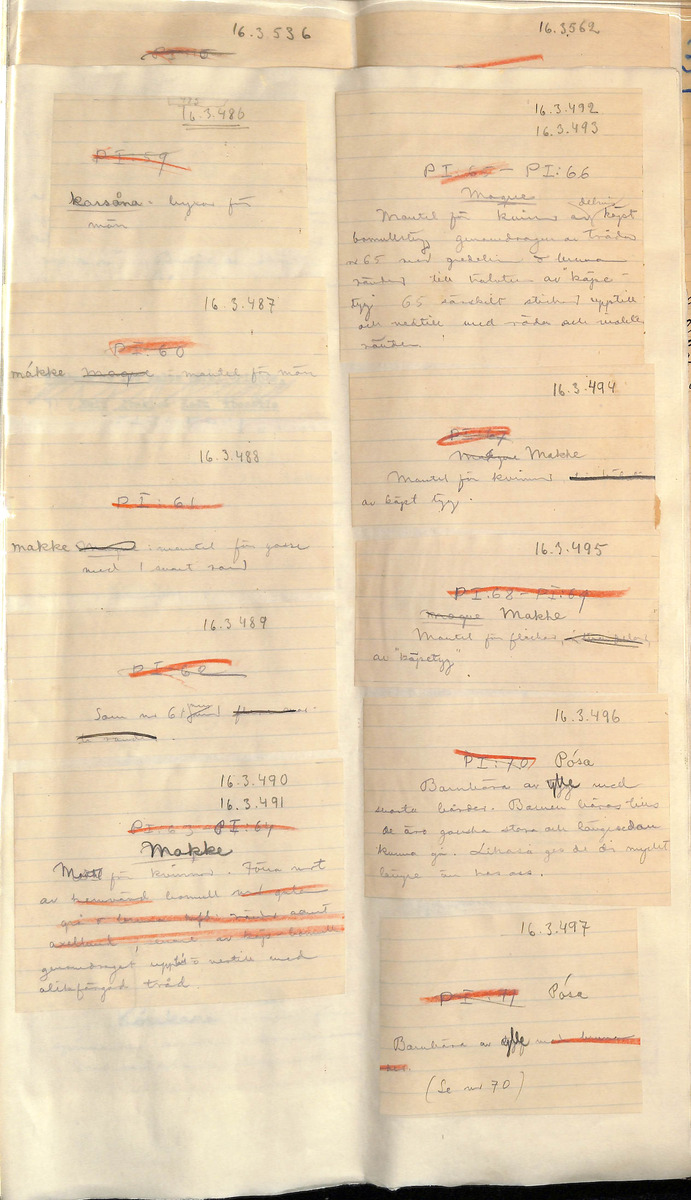 16.3.536
16.3.562
16.3.486
PI:59
karsåna - byxor för
män
16.3.487
PI:60
måkke maque : mantel för män
16.3.488
PI:61
makke : mantel för gosse
med 1 svart rand
16.3.489
PI:62
Som nr 61
16.3.490
16.3.491
PI:63 - PI:64
Makke
för kvinnor. Förra mot
av hemvävd bomull
grå + bruna
axelband, av köpt bomull
genomdraget upptill o nertill med
olikfärgad tråd.
16.3.492
16.3.493
PI:65 - PI:66
Maque
delvis
Mantel för kvinnor av köpt
bomullstyg genomdragen av trådar
nr 65 med gredelin + bruna
ränder till av "köpe-
tyg" 65 särskilt upptill
och nedtill med röda och
ränder.
16.3.494
PI:67
Maque Makke
Mantel för kvinnor
av köpt tyg.
16.3.495
PI:68 - PI:69
maque Makke
Mantel för flickor,
av "köpetyg"
16.3.496
PI:70 Pósa
Barnbära av ylle med
svarta bårder. Barnen bäras tills
de äro ganska stora och länge sedan
kunna gå. Likaså ges de di mycket
längre än hos oss.
16.3.497
PI:71 Pósa
Barnbära av ylle med bruna
(Se nr 70)